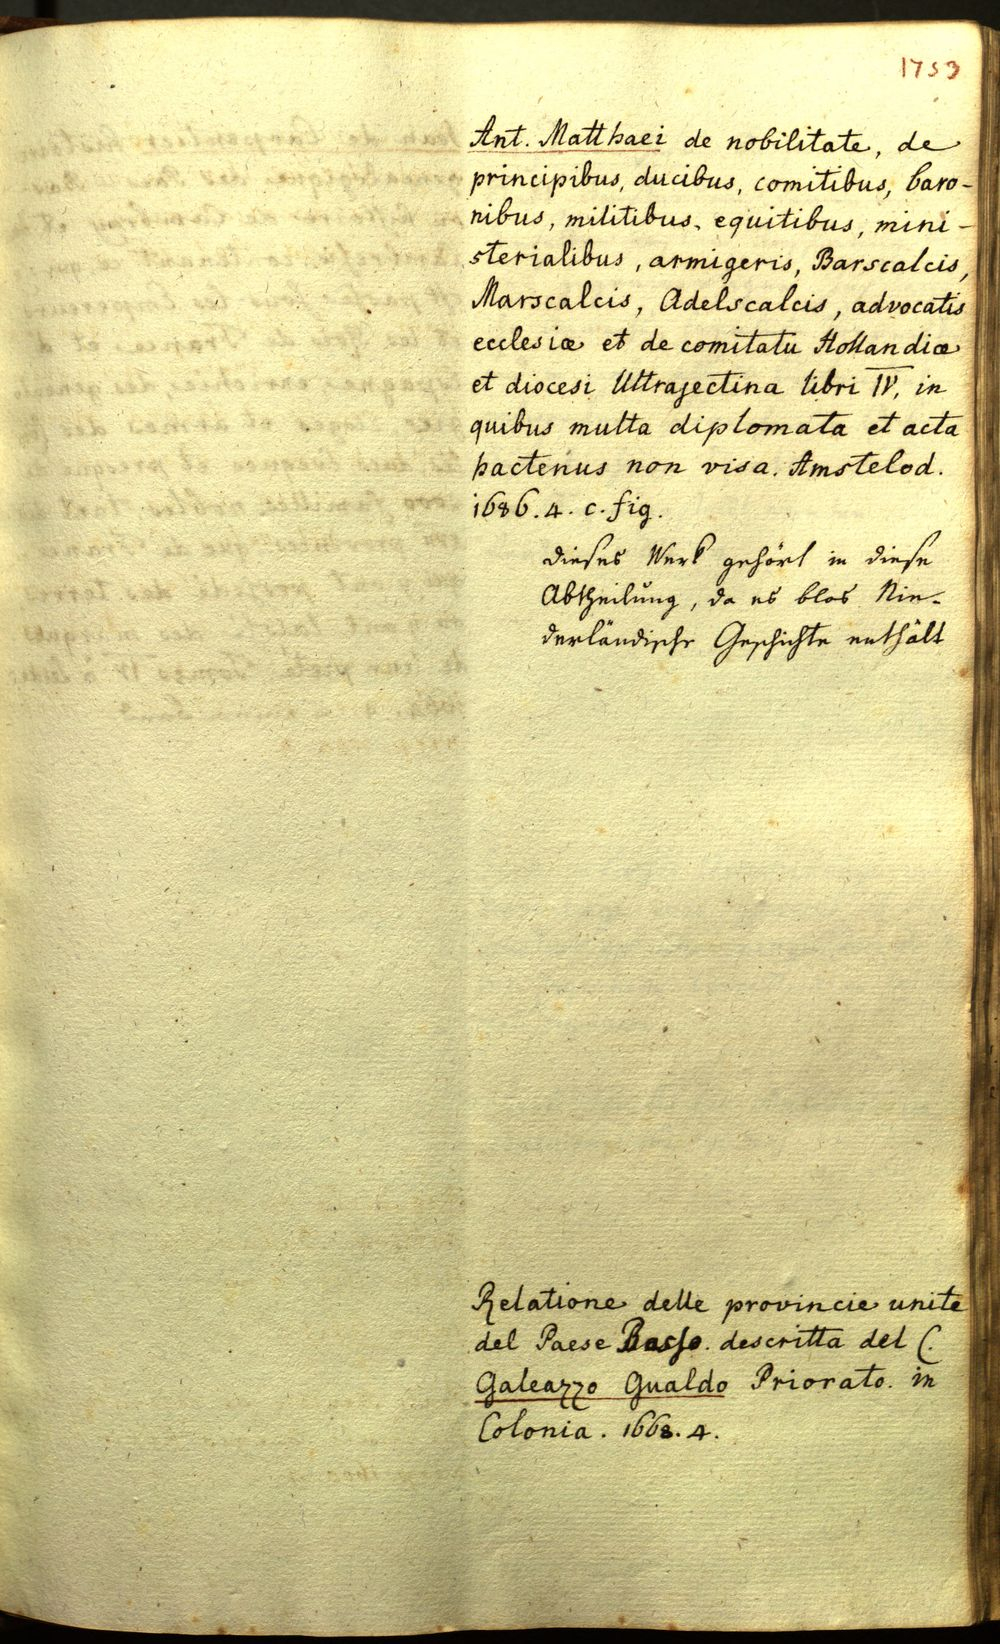 1753
Ant. Matthaei de nobilitate, de
principibus, ducibus, comitibus, baro-
nibus, militibus, equitibus, mini-
sterialibus, armigeris, Barscalcis,
Marscalcis, Adelscalcis, advocatis
ecclesiæ et de comitatu Hollandiæ
et diocesi Ultrajectina libri IV, in
quibus multa diplomata et acta
hactenus non visa. Amstelod.
1686. 4. c. fig.
dieses Werk gehört in diese
Abtheilung, da es blos Nie-
derländische Geschichte enthält
Relatione delle provincie unite
del Paese Basso. descritta del C.
Galeazzo Gualdo Priorato. in
Colonia. 1668. 4.